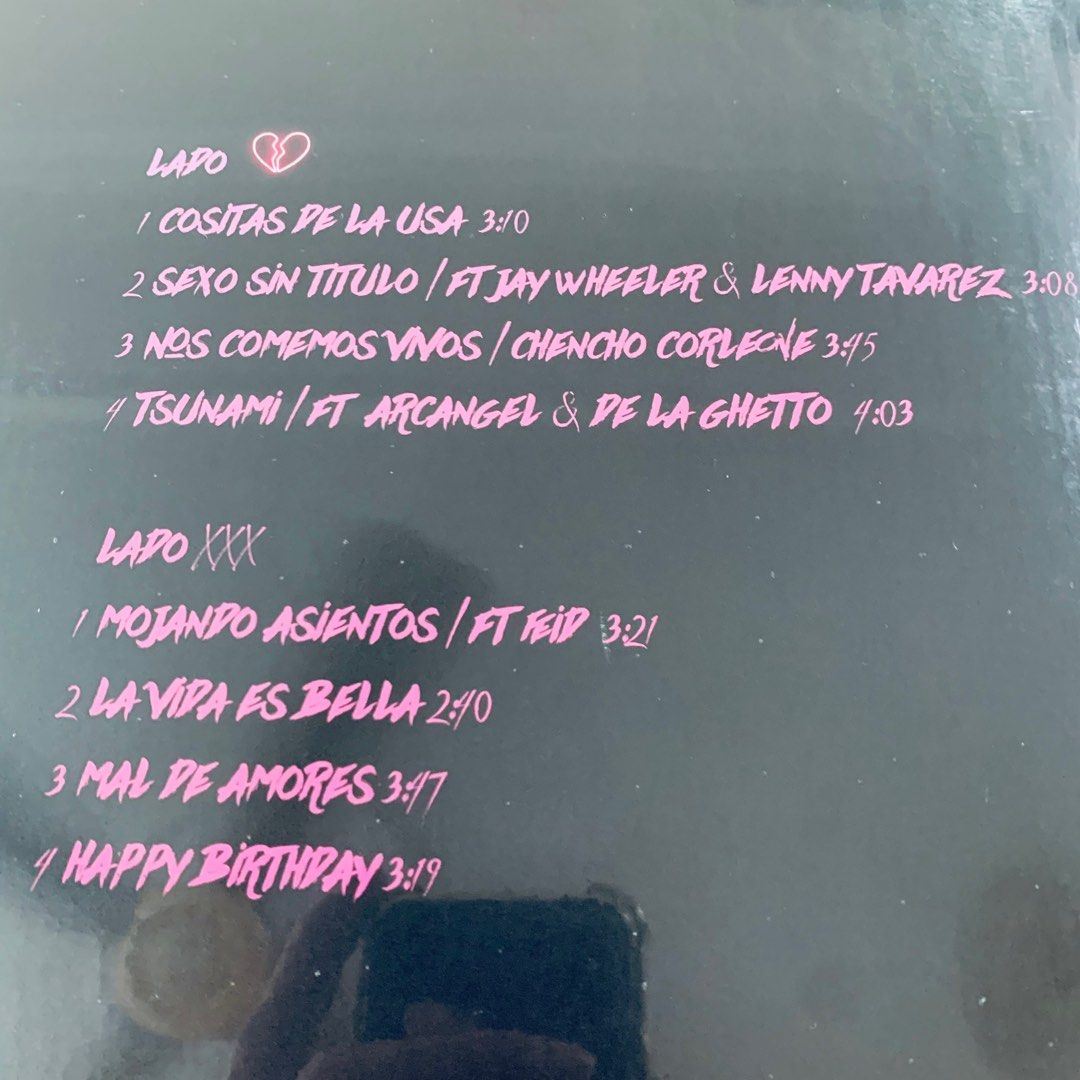 LADO
1 COSITAS DE LA USA 3:10
2 SEXO SIN TITULO / FT JAY WHEELER & LENNY TAVAREZ 3:08
3 NOS COMEMOS VIVOS / CHENCHO CORLEONE 3:45
4 TSUNAMI / FT ARCANGEL & DE LA GHETTO 4:03
LADO XXX
1 MOJANDO ASIENTOS / FT FEID 3:21
2 LA VIDA ES BELLA 2:40
3 MAL DE AMORES 3:47
4 HAPPY BIRTHDAY 3:19